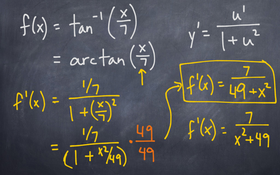 f(x) = tan⁻¹(x/7)
= arctan(x/7)
f'(x) = 1/7 / (1 + (x/7)²)
= 1/7 / (1 + x²/49) · 49/49
y' = u' / (1 + u²)
f'(x) = 7 / (49 + x²)
f'(x) = 7 / (x² + 49)